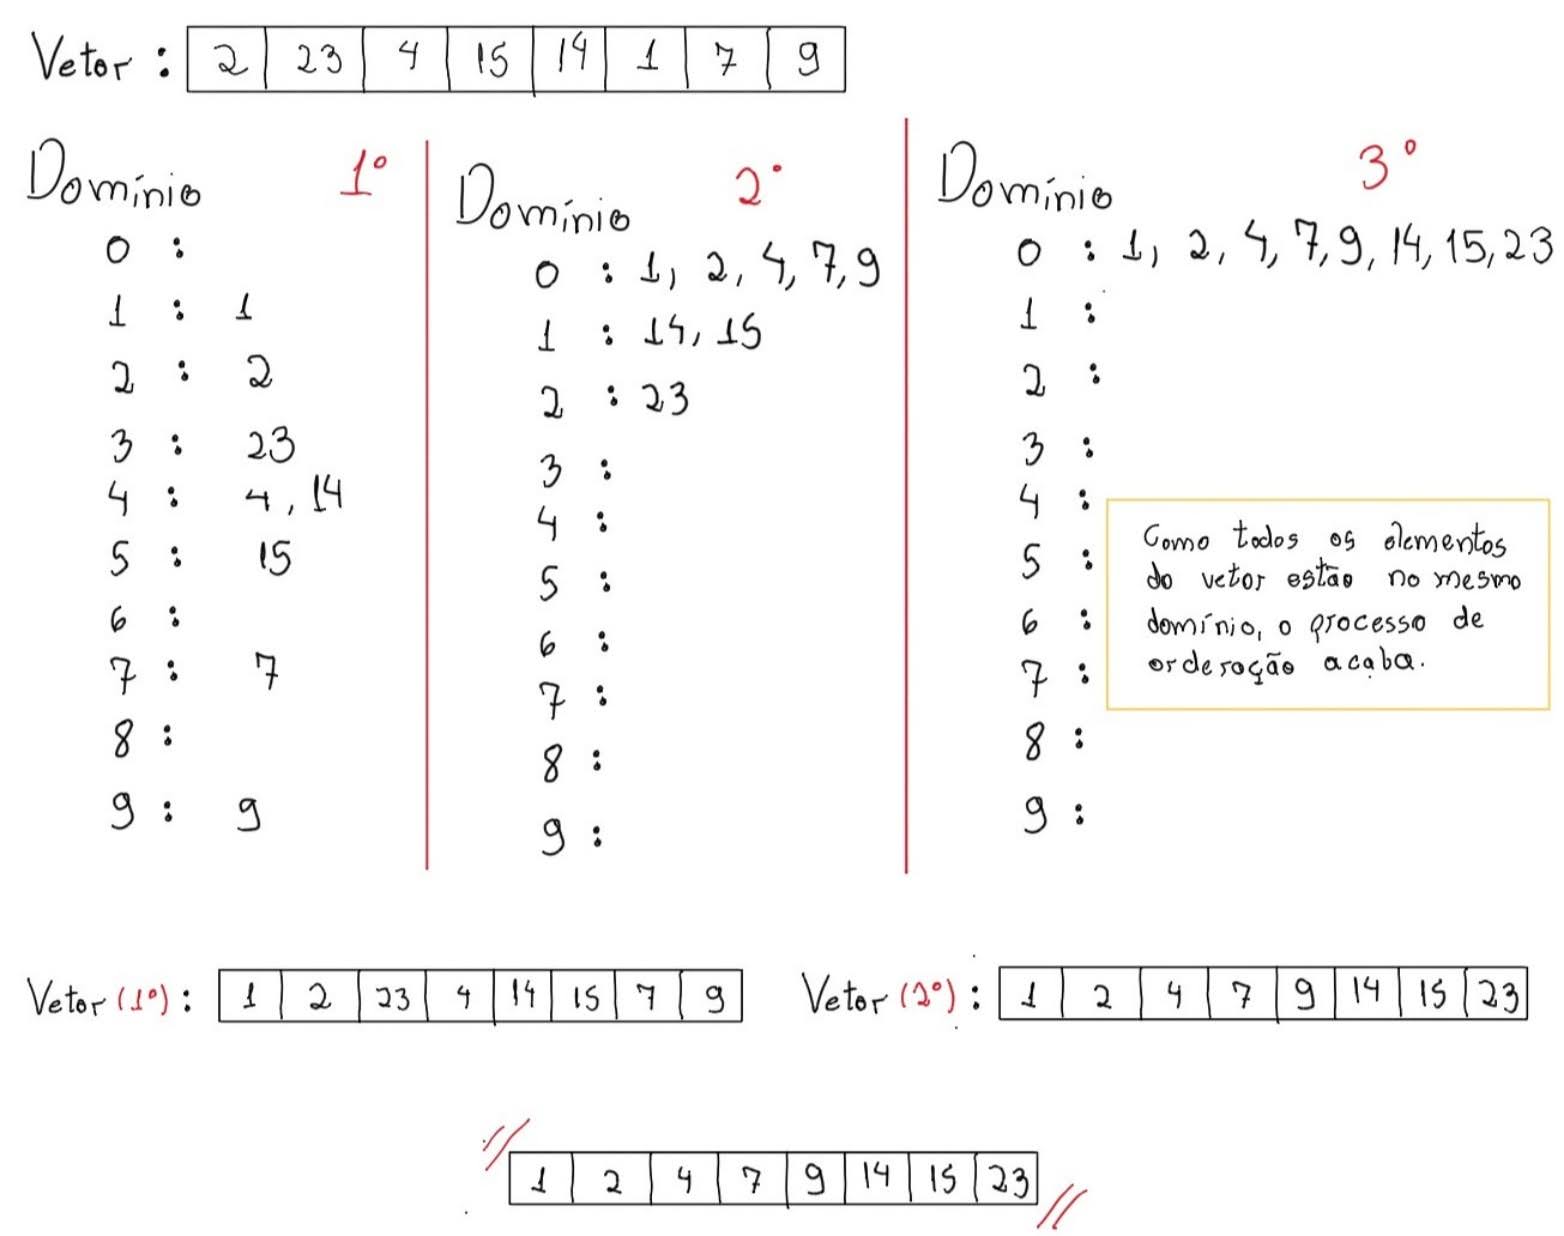 Vetor : 2 23 4 15 14 1 7 9
Domínio 1º
0 :
1 : 1
2 : 2
3 : 23
4 : 4, 14
5 : 15
6 :
7 : 7
8 :
9 : 9
Domínio 2º
0 : 1, 2, 4, 7, 9
1 : 14, 15
2 : 23
3 :
4 :
5 :
6 :
7 :
8 :
9 :
Domínio 3º
0 : 1, 2, 4, 7, 9, 14, 15, 23
1 :
2 :
3 :
4 :
5 :
6 :
7 :
8 :
9 :
Como todos os elementos
do vetor estão no mesmo
domínio, o processo de
orderação acaba.
Vetor (1º) : 1 2 23 4 14 15 7 9
Vetor (2º) : 1 2 4 7 9 14 15 23
// 1 2 4 7 9 14 15 23 //